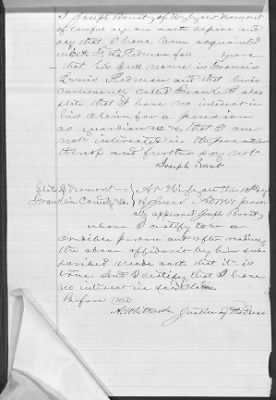 I Joseph Benoit of Highgate Vermont
of lawful age on oath depose and
say that I have been acquainted
with F. L. Pidman for years
that his full name is Francis
Louis Pidman and that he is
commonly called Frank I also
state that I have no interest in
his claim for a pension
as guardian & that I am
not interested in the prosecution
thereof and further say not
Joseph Benoit
State of Vermont
Franklin County ss
At Highgate this 14 day
of A.D. 1887 person
ally appeared Joseph Benoit
whom I certify to be a
credible person and after reading
the above affidavit by him sub
scribed made oath that it is
true. And I certify that I have
no interest in said claim
Before me
Justice of the Peace